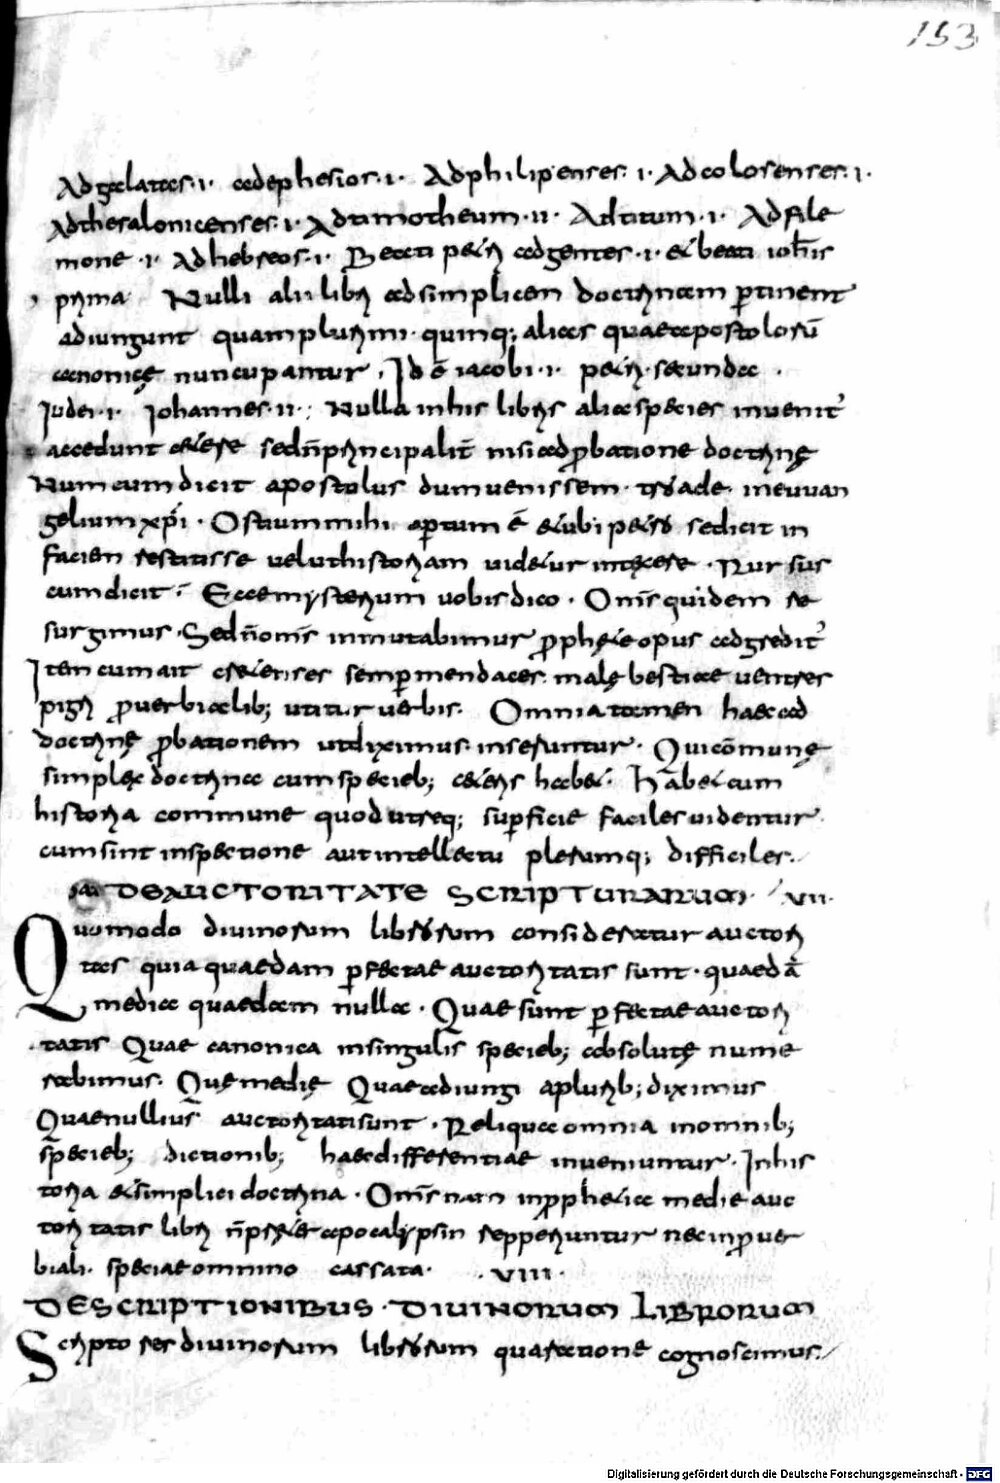 153
Adgalatas·i· adephesios·i· Adphilipenses·i· Adcolosenses·i·
Adthesalonicenses·i· Adtimotheum·ii· Adtitum·i· Adfile
mone·i· Adhebreos·i· Beati petri adgentes·i· et beati ioħis
prima· Nulli alii libri adsimplicem doctrinam ꝑtinent
adiungunt quamplurimi· quinq; alias quae apostolorū
canonicę nuncupantur, Id ē iacobi·i· petri·secunda·
Iudei·i· Iohannes·ii·; Nulla inhis libris alia species inuenit᷑
accedunt cetere sedn̄principalit̄ nisi adꝓbatione doctrinę
Num cum dicit apostolus dumuenissem·troade· ineuuan
gelium xp̄i· Ostiummihi aꝑtum ē et ubi petro sedicit in
facien restitisse uelut historiam uidetur intexere· Rursus
cumdicit; Ecce mysterium uobis dico· Om̄s quidem re
surgimus· Sedn̄ om̄s inmutabimur ꝓphetie opus adgredit᷑
Item cum ait cretenses semꝑ mendaces· malę bestiae uentres
pigri ꝓuerbialib; utitur uerbis· Omnia tamen haec ad
doctrinę ꝓbationem utdiximus· inseruntur· Qui cōmunę
simplex doctrina cum specieb; ceteris habet· Habet cum
historia commune quod utreq; suꝑficie faciles uidentur·
cum sint inspectione aut intellectu plerumq; difficiles·
DEAUCTORITATE SCRIPTURARUM· VII·
Quomodo diuinorum librorum consideratur auctori
tas quia quaedam ꝑfectae auctoritatis sunt· quaedā
media quaedam nulla· Quae sunt ꝑfectae auctori
tatis Quae canonica insingulis specieb; absolutę nume
rabimus· Quę medię Quae adiungi a plurib; diximus
Quae nullius auctoritati sunt· Reliqua omnia inomnib;
specieb; dictionib; haec differentiae inueniuntur· Inhis
toria et simplici doctrina· Om̄s nam inꝓphetia medie auc
toritatis libri n̄ preter apocalypsin repperiuntur nec inꝓuer
biali· speciae omnino cassata· ·VIII·
DESCRIPTIONIBUS· DIUINORUM LIBRORUM
Scriptores diuinorum librorum qua ratione cognoscimus·
Digitalisierung gefördert durch die Deutsche Forschungsgemeinschaft - DFG